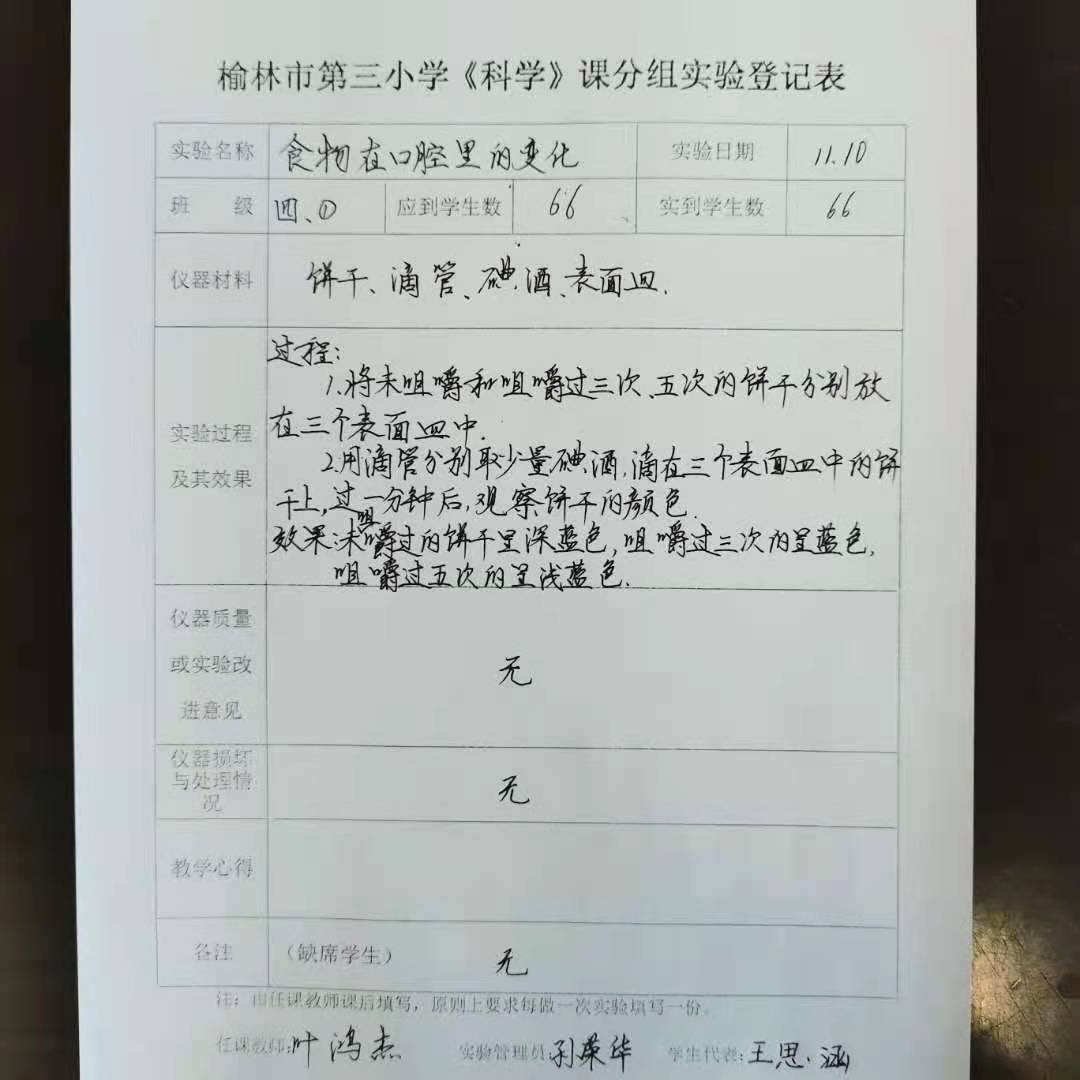 榆林市第三小学《科学》课分组实验登记表
实验名称 食物在口腔里的变化 实验日期 11.10
班 级 四、① 应到学生数 66 实到学生数 66
仪器材料 饼干、滴管、碘酒、表面皿.
过程:
1.将未咀嚼和咀嚼过三次、五次的饼干分别放
在三个表面皿中.
实验过程
及其效果
2.用滴管分别取少量碘酒,滴在三个表面皿中的饼
干上,过一分钟后,观察饼干的颜色.
效果:未咀嚼过的饼干呈深蓝色,咀嚼过三次的呈蓝色,
咀嚼过五次的呈浅蓝色.
仪器质量
或实验改
进意见
无
仪器损坏
与处理情
况
无
教学心得
备注 (缺席学生) 无
注:由任课教师课后填写,原则上要求每做一次实验填写一份。
任课教师:叶鸿杰 实验管理员:孙荣华 学生代表:王思涵